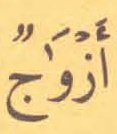 أَزْوَاجٌ